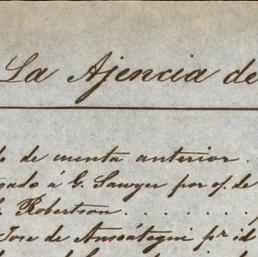 La Ajencia de
de cuenta anterior .
gado á G. Sawyer por o/. de
Robertson . . . . . .
Jose de Amoátegui pr id